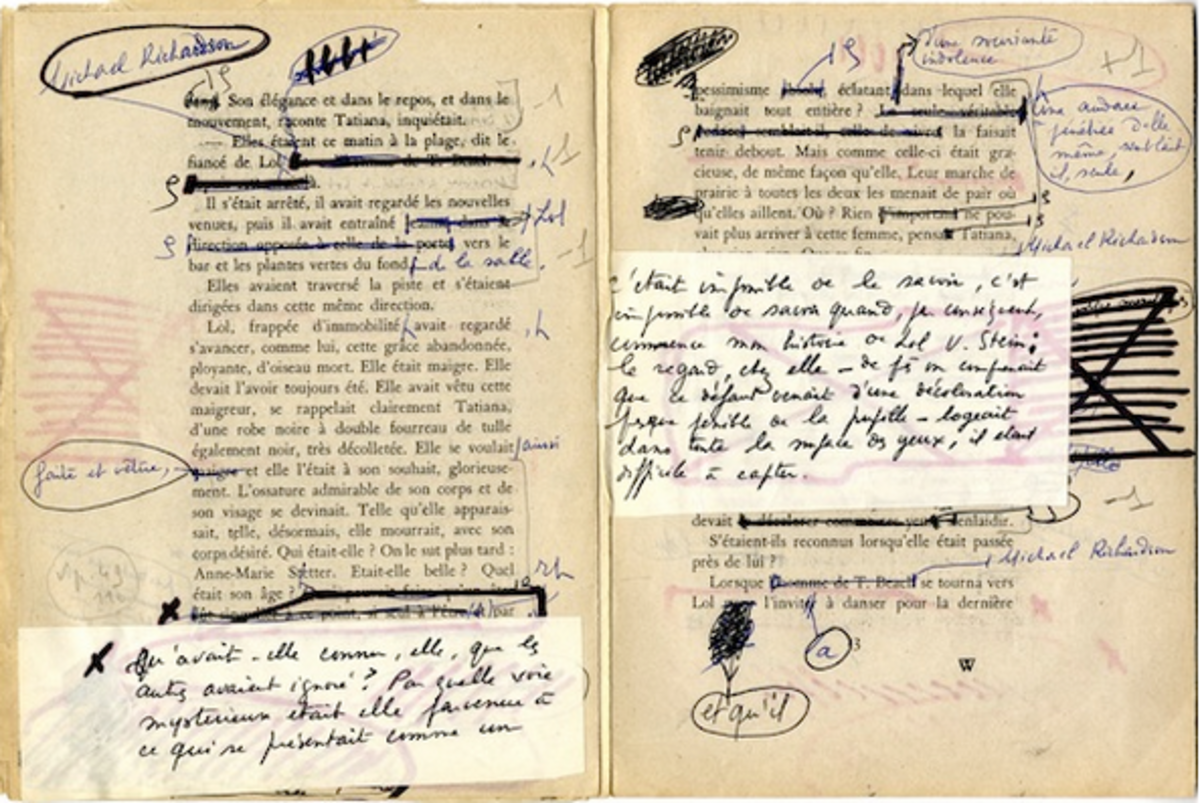 Michael Richardson
Son élégance et dans le repos, et dans le
mouvement, raconte Tatiana, inquiétait.
— Elles étaient ce matin à la plage, dit le
fiancé de Lol
Il s'était arrêté, il avait regardé les nouvelles
venues, puis il avait entraîné
Lol
direction opposée à celle de la porte vers le
bar et les plantes vertes du fond
de la salle.
Elles avaient traversé la piste et s'étaient
dirigées dans cette même direction.
Lol, frappée d'immobilité avait regardé
s'avancer, comme lui, cette grâce abandonnée,
ployante, d'oiseau mort. Elle était maigre. Elle
devait l'avoir toujours été. Elle avait vêtu cette
maigreur, se rappelait clairement Tatiana,
d'une robe noire à double fourreau de tulle
également noir, très décolletée. Elle se voulait
ainsi
faite et vêtue,
maigre et elle l'était à son souhait, glorieuse-
ment. L'ossature admirable de son corps et de
son visage se devinait. Telle qu'elle apparais-
sait, telle, désormais, elle mourrait, avec son
corps désiré. Qui était-elle ? On le sut plus tard :
Anne-Marie Stretter. Etait-elle belle ? Quel
était son âge ?
Qu'avait-elle connu, elle, que les
autres avaient ignoré ? Par quelle voie
mystérieuse était-elle parvenue à
ce qui se présentait comme un
d'une souriante
indolence
+1
pessimisme éclatant dans lequel elle
baignait tout entière ? La seule véritable
Une audace
pénétrée d'elle
même, semblait
il, seule,
semblait-il, celle de vivre la faisait
tenir debout. Mais comme celle-ci était gra-
cieuse, de même façon qu'elle. Leur marche de
prairie à toutes les deux les menait de pair où
qu'elles aillent. Où ? Rien d'important ne pou-
vait plus arriver à cette femme, pensa Tatiana,
Michael Richardson
c'était impossible de le savoir, c'est
impossible de savoir quand, par conséquent,
commence mon histoire de Lol V. Stein :
le regard, chez elle — de près on comprenait
que ce défaut venait d'une décoloration
presque pénible de la pupille — logeait
dans toute la surface des yeux, il était
difficile à capter.
-1
devait enlaidir.
S'étaient-ils reconnus lorsqu'elle était passée
près de lui ?
Michael Richardson
Lorsque l'homme de T. Beach se tourna vers
Lol l'inviter à danser pour la dernière
a
et qu'il
W